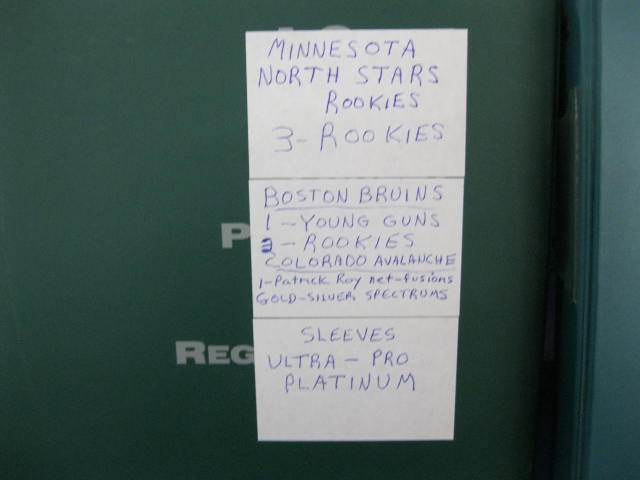 MINNESOTA
NORTH STARS
ROOKIES
3-ROOKIES
BOSTON BRUINS
1-YOUNG GUNS
-ROOKIES
COLORADO AVALANCHE
1-Patrick Roy net-fusions
GOLD-SILVER SPECTRUMS
SLEEVES
ULTRA-PRO
PLATINUM
REG